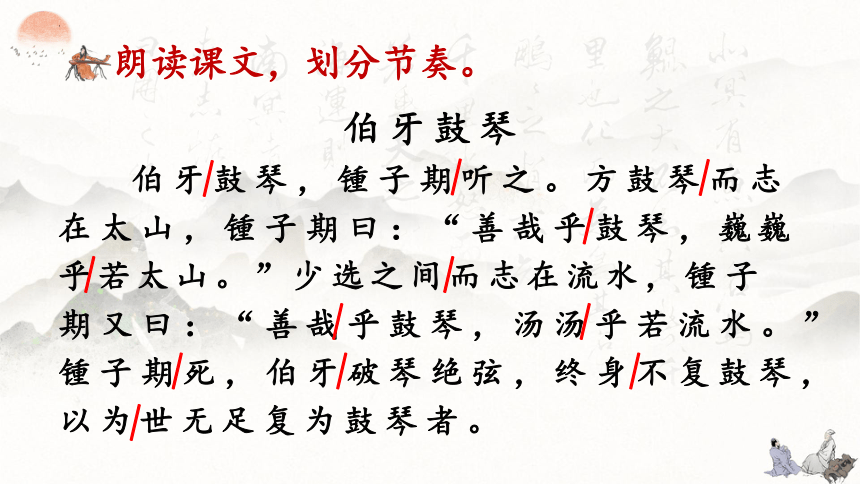 朗读课文，划分节奏。
伯牙鼓琴
伯牙/鼓琴，锺子期/听之。方鼓琴/而志
在太山，锺子期曰：“善哉乎/鼓琴，巍巍
乎/若太山。”少选之间/而志在流水，锺子
期又曰：“善哉/乎鼓琴，汤汤/乎若流水。”
锺子期/死，伯牙/破琴绝弦，终身/不复鼓琴，
以为/世无足复为鼓琴者。